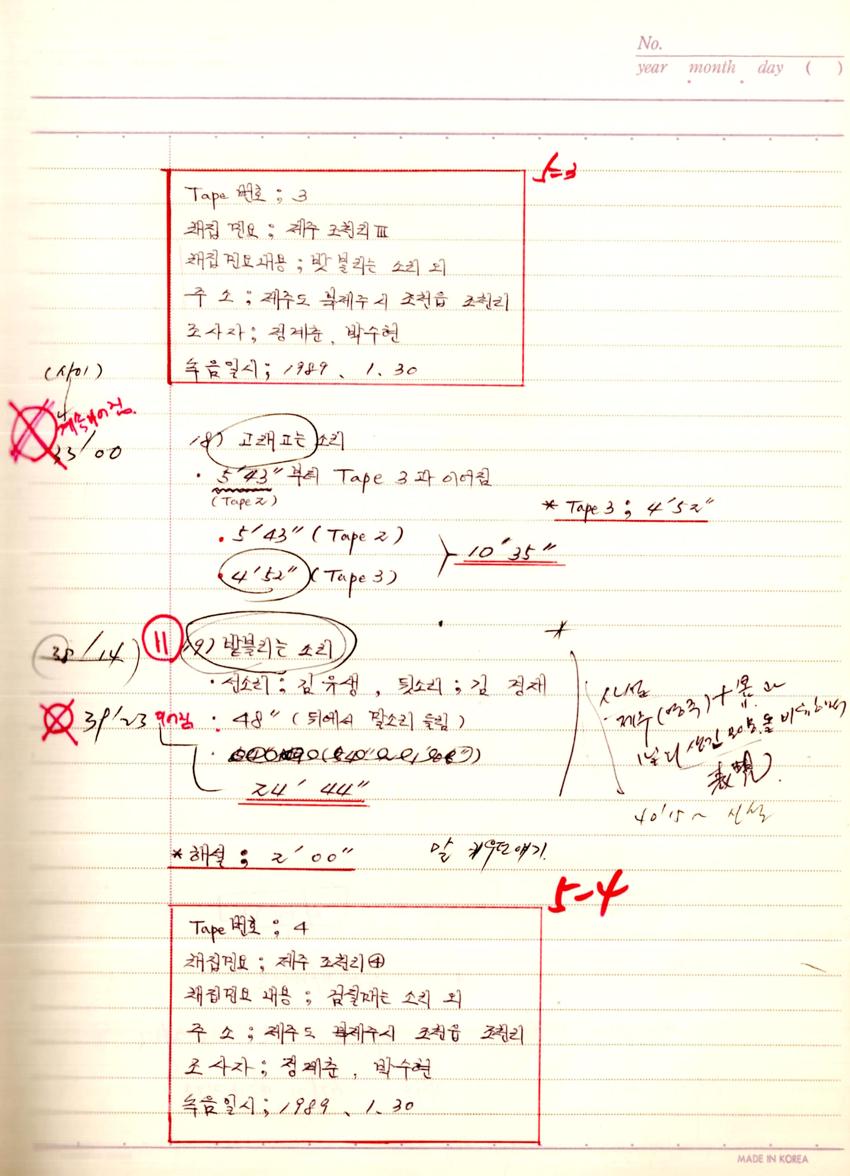 No.
year month day ( )
5-3
Tape 번호 ; 3
채집민요 ; 제주 조천리 Ⅲ
채집민요내용 ; 밧 불리는 소리 외
주 소 ; 제주도 북제주시 조천읍 조천리
조사자 ; 정제춘, 박수현
녹음일시 ; 1989、1.30
(사이)
계속이어짐.
33/00
18) 고래고는 소리
· 5'43" 부터 Tape 3과 이어짐
(Tape 2)
* Tape 3 ; 4'52"
· 5'43" (Tape 2)
10'35"
· 4'52" (Tape 3)
38/14)
11
19) 밭불리는 소리
*
· 선소리 ; 김유생 , 뒷소리 ; 김경재
39/23 이어짐
· 48" (뒤에서 말소리 들림)
24'44"
신설
제주(영주)+
表現)
40'15~ 신설
* 해설 ; 2'00"
말 키우던 얘기.
5-4
Tape 번호 ; 4
채집민요 ; 제주 조천리 ④
채집민요 내용 ; 검질매는 소리 외
주 소 ; 제주도 북제주시 조천읍 조천리
조사자 ; 정제춘 , 박수현
녹음일시 ; 1989、1.30
MADE IN KOREA